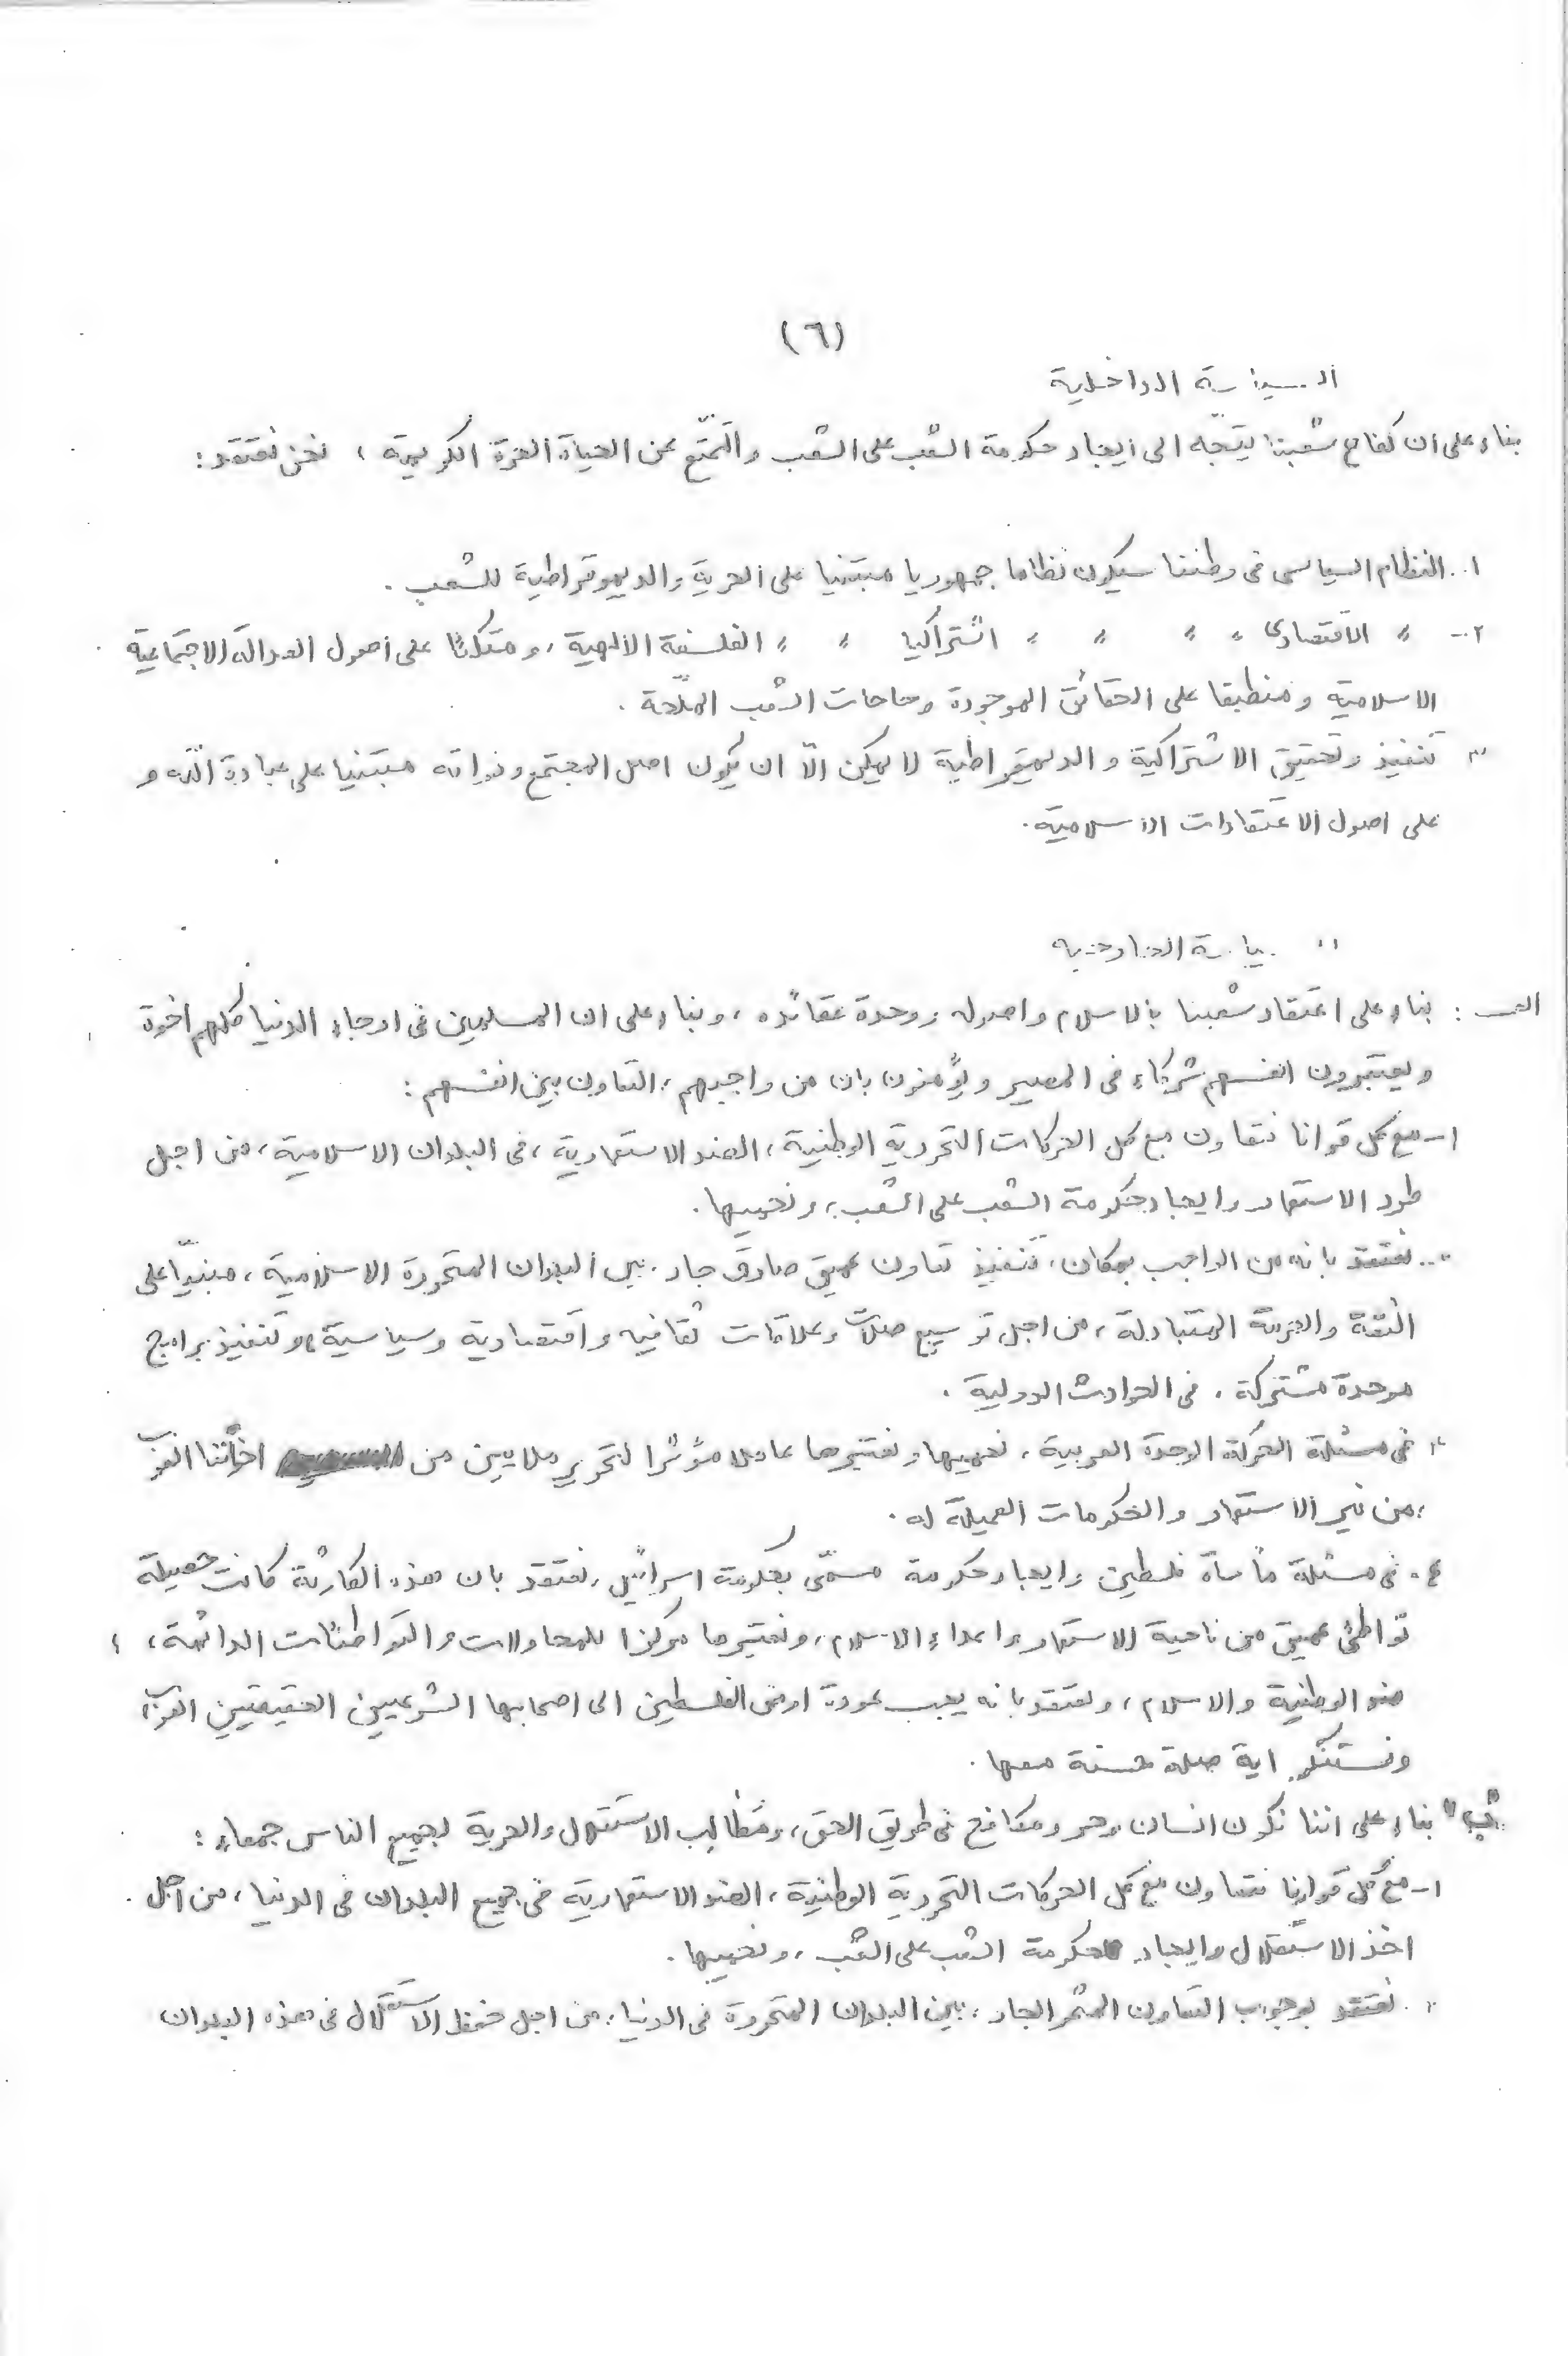 (٦)
السياسة الداخلية
بناء على ان كفاح شعبنا يتجّه الى ايجاد حكومة الشعب على الشعب والتمتّع عن الحياة الحرة الكريمة ، نحن نعتقد :
١.. النظام السياسى فى وطننا سيكون نظاما جمهوريا مبتنيا على الحرية والديموقراطية للشعب .
٢.- " الاقتصادى " " " " اشتراكيا " " الفلسفة الالهية ، ومتكئا على اصول العدالة الاجتماعية
الاسلامية ومنطبقا على الحقائق الموجودة وحاجات الشعب الملّحة .
٣ تنفيذ وتحقيق الاشتراكية والديمقراطية لا يمكن الاّ ان يكون اصل المجتمع وذراته مبتنيا على عبادة اللّه و
على اصول الاعتقادات الاسلامية .
السياسة الخارجية
الف : بناء على اعتقاد شعبنا بالاسلام واصوله ووحدة عقائده ، وبناء على ان المسلمين فى ارجاء الدنيا كلهم اخوة
ويعتبرون انفسهم شركاء فى المصير ويؤمنون بان من واجبهم ، التعاون بين انفسهم :
١- مع كل قوانا نتعاون مع كل الحركات التحررية الوطنية ، الضد الاستعمارية ، فى البلدان الاسلامية ، من اجل
طرد الاستعمار وايجاد حكومة الشعب على الشعب ، ونحميها .
.. نعتقد بانه من الواجب بمكان ، تنفيذ تعاون عميق صادق جاد ، بين البلدان المتحررة الاسلامية ، مبنيّا على
الثقة والحرمة المتبادلة ، من اجل توسيع صلات وعلاقات ثقافيه واقتصادية وسياسية ، وتنفيذ برامج
موحدة مشتركة ، فى الحوادث الدولية .
٣ فى مسئلة الحركة الوحدة العربية ، نحميها ونعتبرها عاملا مؤثرا لتحرير ملايين من اخواننا العرب
، من نير الاستعمار والحكومات العميلة له .
٤ . فى مسئلة مأساة فلسطين وايجاد حكومة مسمّى بحكومة اسرائيل ، نعتقد بان هذه الكارثة كانت حصيلة
تواطئ عميق من ناحية الاستعمار واعداء الاسلام ، ونعتبرها مركزا للمحاولات والتواطئات الدائمة ، ؛
ضد الوطنية والاسلام ، ونعتقد بانه يجب عودة ارض الفلسطين الى اصحابها الشرعيين الحقيقيين العرب
ونستنكر اية صلة حسنة معها .
"ب" بناء على اننا نكون انسان وحر ومكافح فى طريق الحق ، ومطالب الاستقلال والحرية لجميع الناس جمعاء :
١- مع كل قوانا نتعاون مع كل الحركات التحررية الوطنية ، الضد الاستعمارية فى جميع البلدان فى الدنيا ، من اجل .
اخذ الاستقلال وايجاد حكومة الشعب على الشعب ، ونحميها .
٢ . نعتقد بوجوب التعاون المثمر الجاد ، بين البلدان المتحررة فى الدنيا ، من اجل حفظ الاستقلال فى هذه البلدان